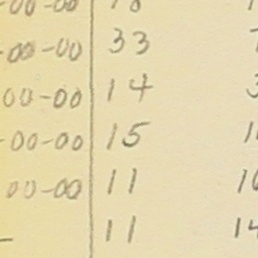 -00-00 18
-00-00 33
00-00 14
-00-00 15 1
00-00 11 10
- 11 14